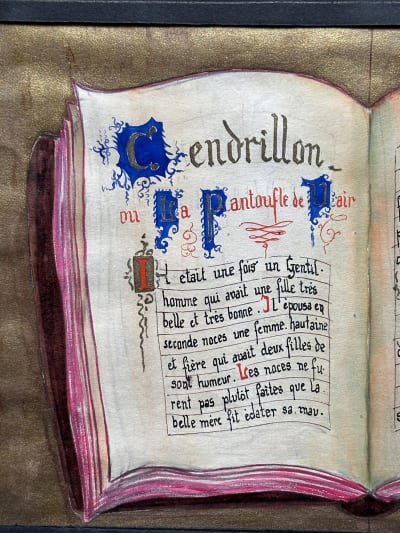 Cendrillon
ou La Pantoufle de Vair
Il était une fois un Gentil-
homme qui avait une fille très
belle et très bonne. Il épousa en
seconde noces une femme hautaine
et fière qui avait deux filles de
son humeur. Les noces ne fu-
rent pas plutôt faites que la
belle mère fit éclater sa mau-